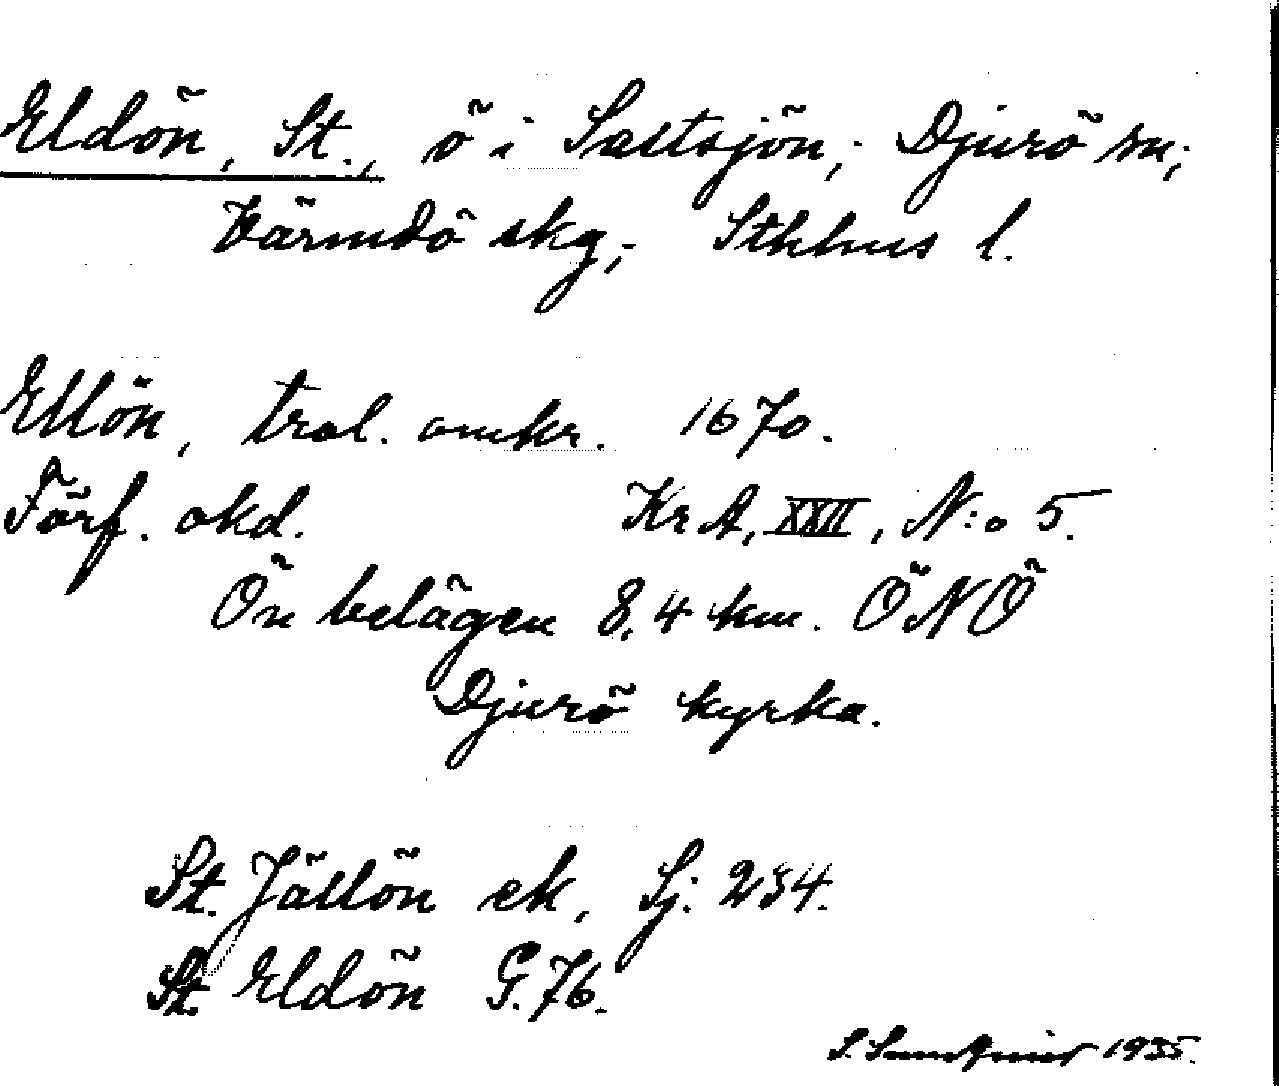 Eldön, St., ö i Saltsjön; Djurö sn;
Värmdö skg; Sthlms l.
Ellön, trol. omkr. 1670.
Förf. okd. Kr A, XXII, N:o 5.
Ön belägen 8,4 km. ÖNÖ
Djurö kyrka.
St. Jällön ek, Sj: 234.
St. Eldön G. 76.
S. Sundquist 1935.